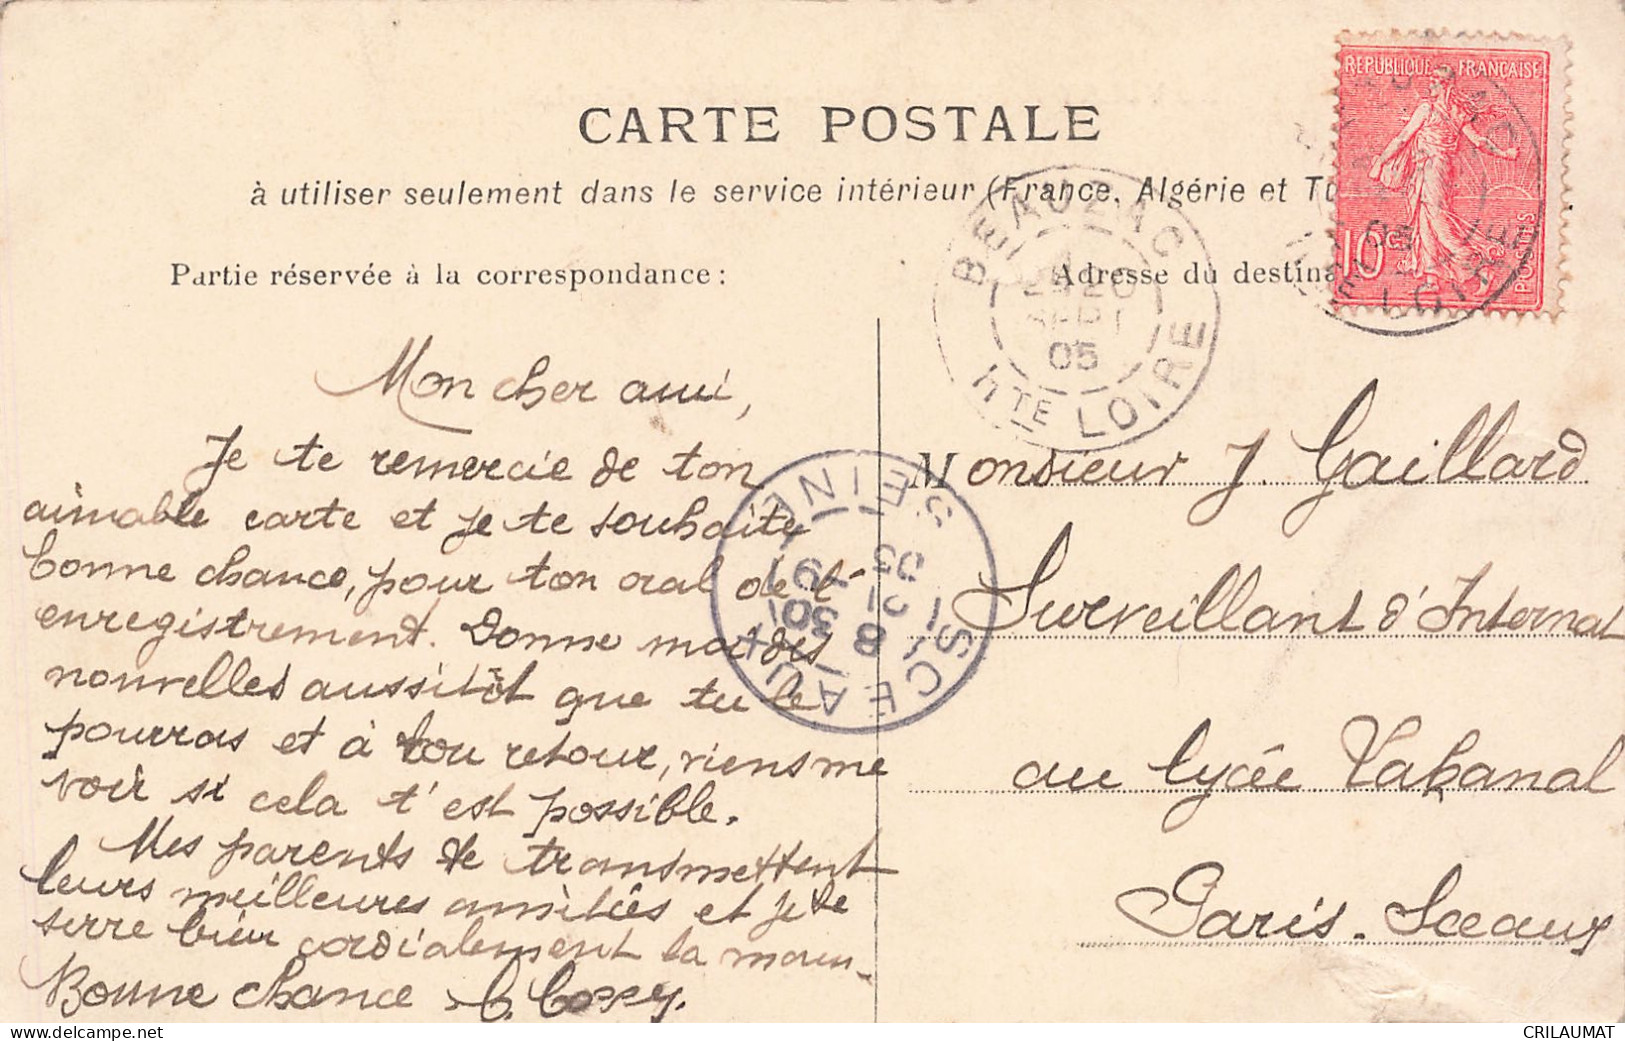 CARTE POSTALE
à utiliser seulement dans le service intérieur (France, Algérie et Tu
Partie réservée à la correspondance :
Adresse du destina
REPUBLIQUE FRANCAISE
10c
POSTES
BEAUZAC
20
05
Hte LOIRE
Mon cher ami,
Je te remercie de ton
aimable carte et je te souhaite
bonne chance, pour ton oral de l'
enregistrement. Donne moi des
nouvelles aussitôt que tu le
pourras et à ton retour, viens me
voir si cela t'est possible.
Mes parents te transmettent
leurs meilleures amitiés et je te
serre bien cordialement la main.
Bonne chance
SCEAUX SEINE
8 30
21
05
Monsieur J. Gaillard
Surveillant d'Internat
au lycée Lakanal
Paris. Sceaux
www.delcampe.net
CRILAUMAT